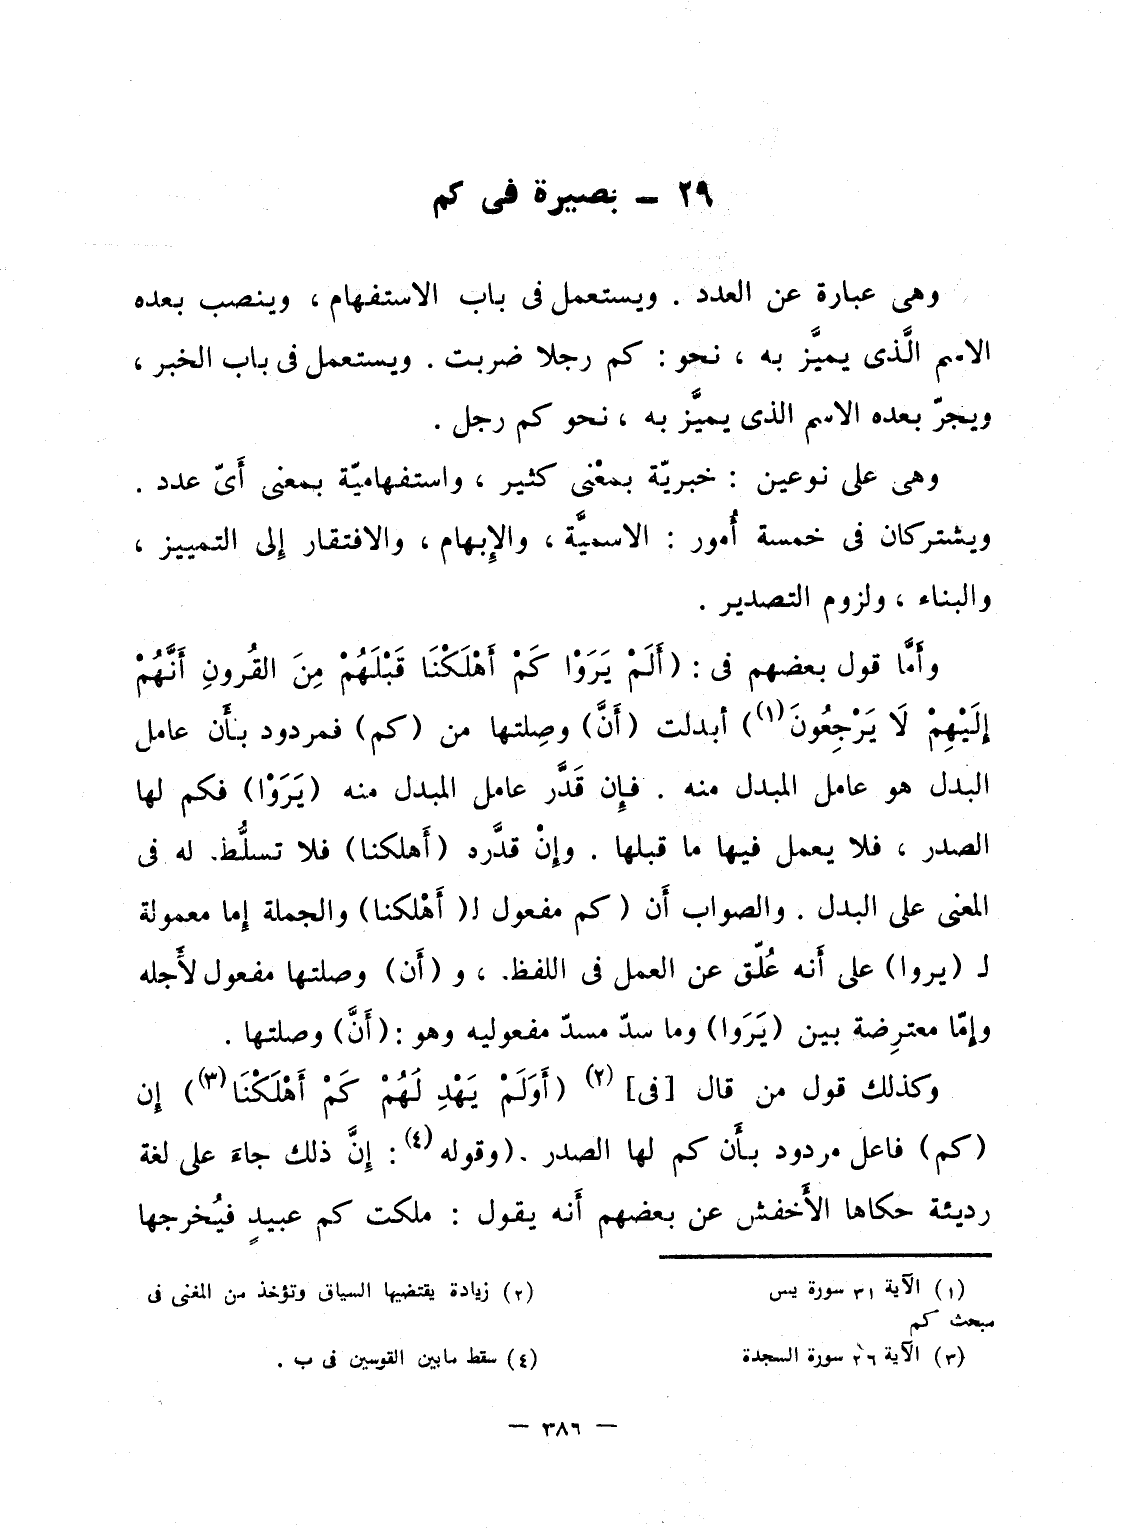 ٢٩ ــ بصيرة فى كم
وهى عبارة عن العدد . ويستعمل فى باب الاستفهام ، وينصب بعده
الاسم الَّذى يميَّز به ، نحو : كم رجلا ضربت . ويستعمل فى باب الخبر ،
ويجرّ بعده الاسم الذى يميَّز به ، نحو كم رجل .
وهى على نوعين : خبريّة بمعْنى كثير ، واستفهاميّة بمعنى أَىّ عدد .
ويشتركان فى خمسة أُمور : الاسميَّة ، والإِبهام ، والافتقار إِلى التمييز ،
والبناء ، ولزوم التصدير .
وأَمَّا قول بعضهم فى : (أَلَمْ يَرَوْا كَمْ أَهْلَكْنَا قَبْلَهُمْ مِنَ القُرونِ أَنَّهُمْ
إِلَيْهِمْ لَا يَرْجِعُونَ(١)) أبدلت (أَنَّ) وصِلتها من (كم) فمردود بأَن عامل
البدل هو عامل المبدل منه . فإِن قَدَّر عامل المبدل منه (يَرَوْا) فكم لها
الصدر ، فلا يعمل فيها ما قبلها . وإِنْ قدَّرد (أَهلكنا) فلا تسلُّط. له فى
المعنى على البدل . والصواب أَن (كم مفعول لـ( أَهْلكنا) والجملة إِما معمولة
لـ (يروا) على أَنه عُلّق عن العمل فى اللفظ. ، و (أَن) وصلتها مفعول لأَجله
وإِمّا معترِضة بين (يَرَوا) وما سدّ مسدّ مفعوليه وهو :(أَنَّ) وصلتها .
وكذلك قول من قال [فى] (٢) (أَوَلَمْ يَهْدِ لَهُمْ كَمْ أَهْلَكْنَا(٣)) إِن
(كم) فاعل مردود بأَن كم لها الصدر .(وقوله(٤) : إِنَّ ذلك جاءَ على لغة
رديئة حكاها الأَخفش عن بعضهم أَنه يقول : ملكت كم عبيدٍ فيُخرجها
(١) الآية ٣١ سورة يس (٢) زيادة يقتضيها السياق وتؤخذ من المغنى فى
مبحث كم
(٣) الآية ٢٦ سورة السجدة (٤) سقط مابين القوسين فى ب .
— ٣٨٦ —